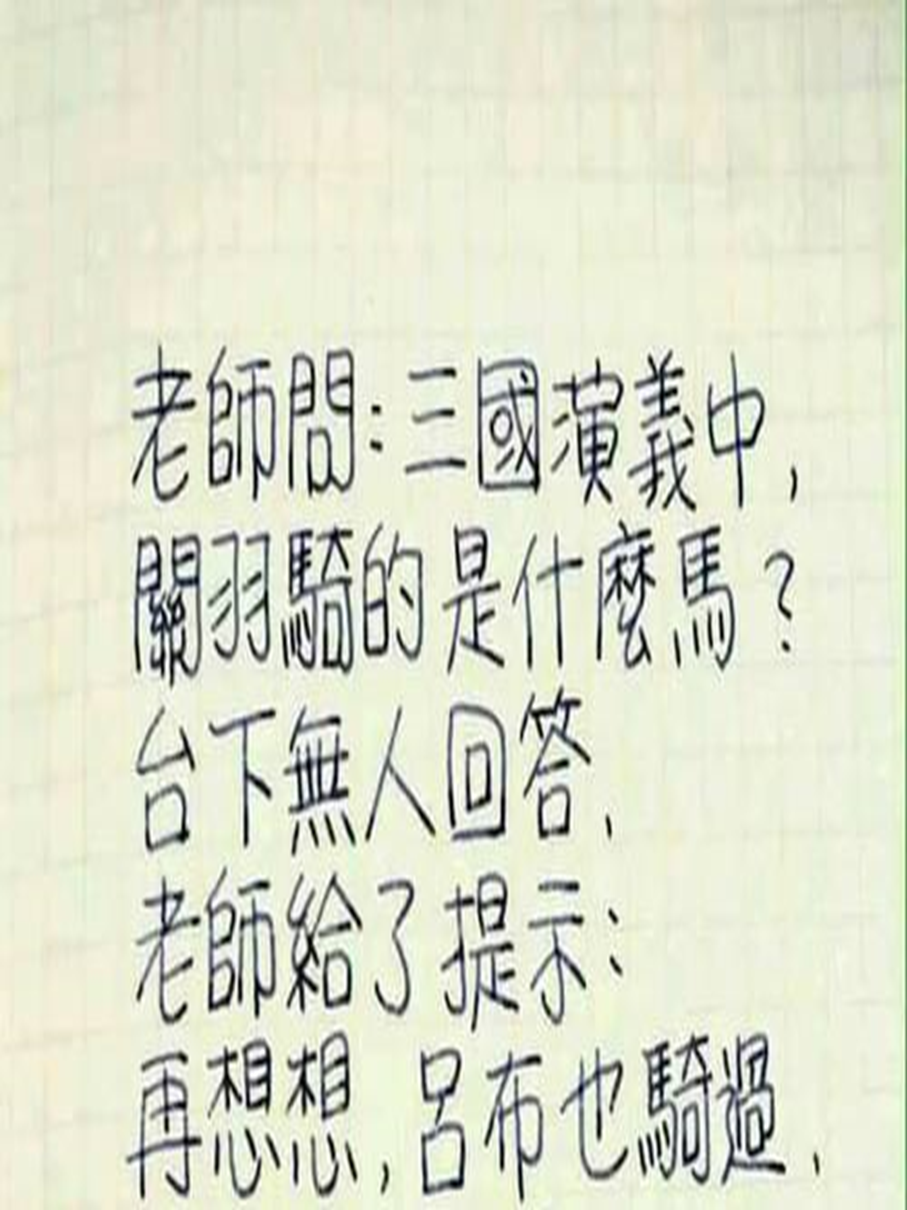 老師問:三國演義中,
關羽騎的是什麼馬?
台下無人回答.
老師給了提示:
再想想,呂布也騎過.